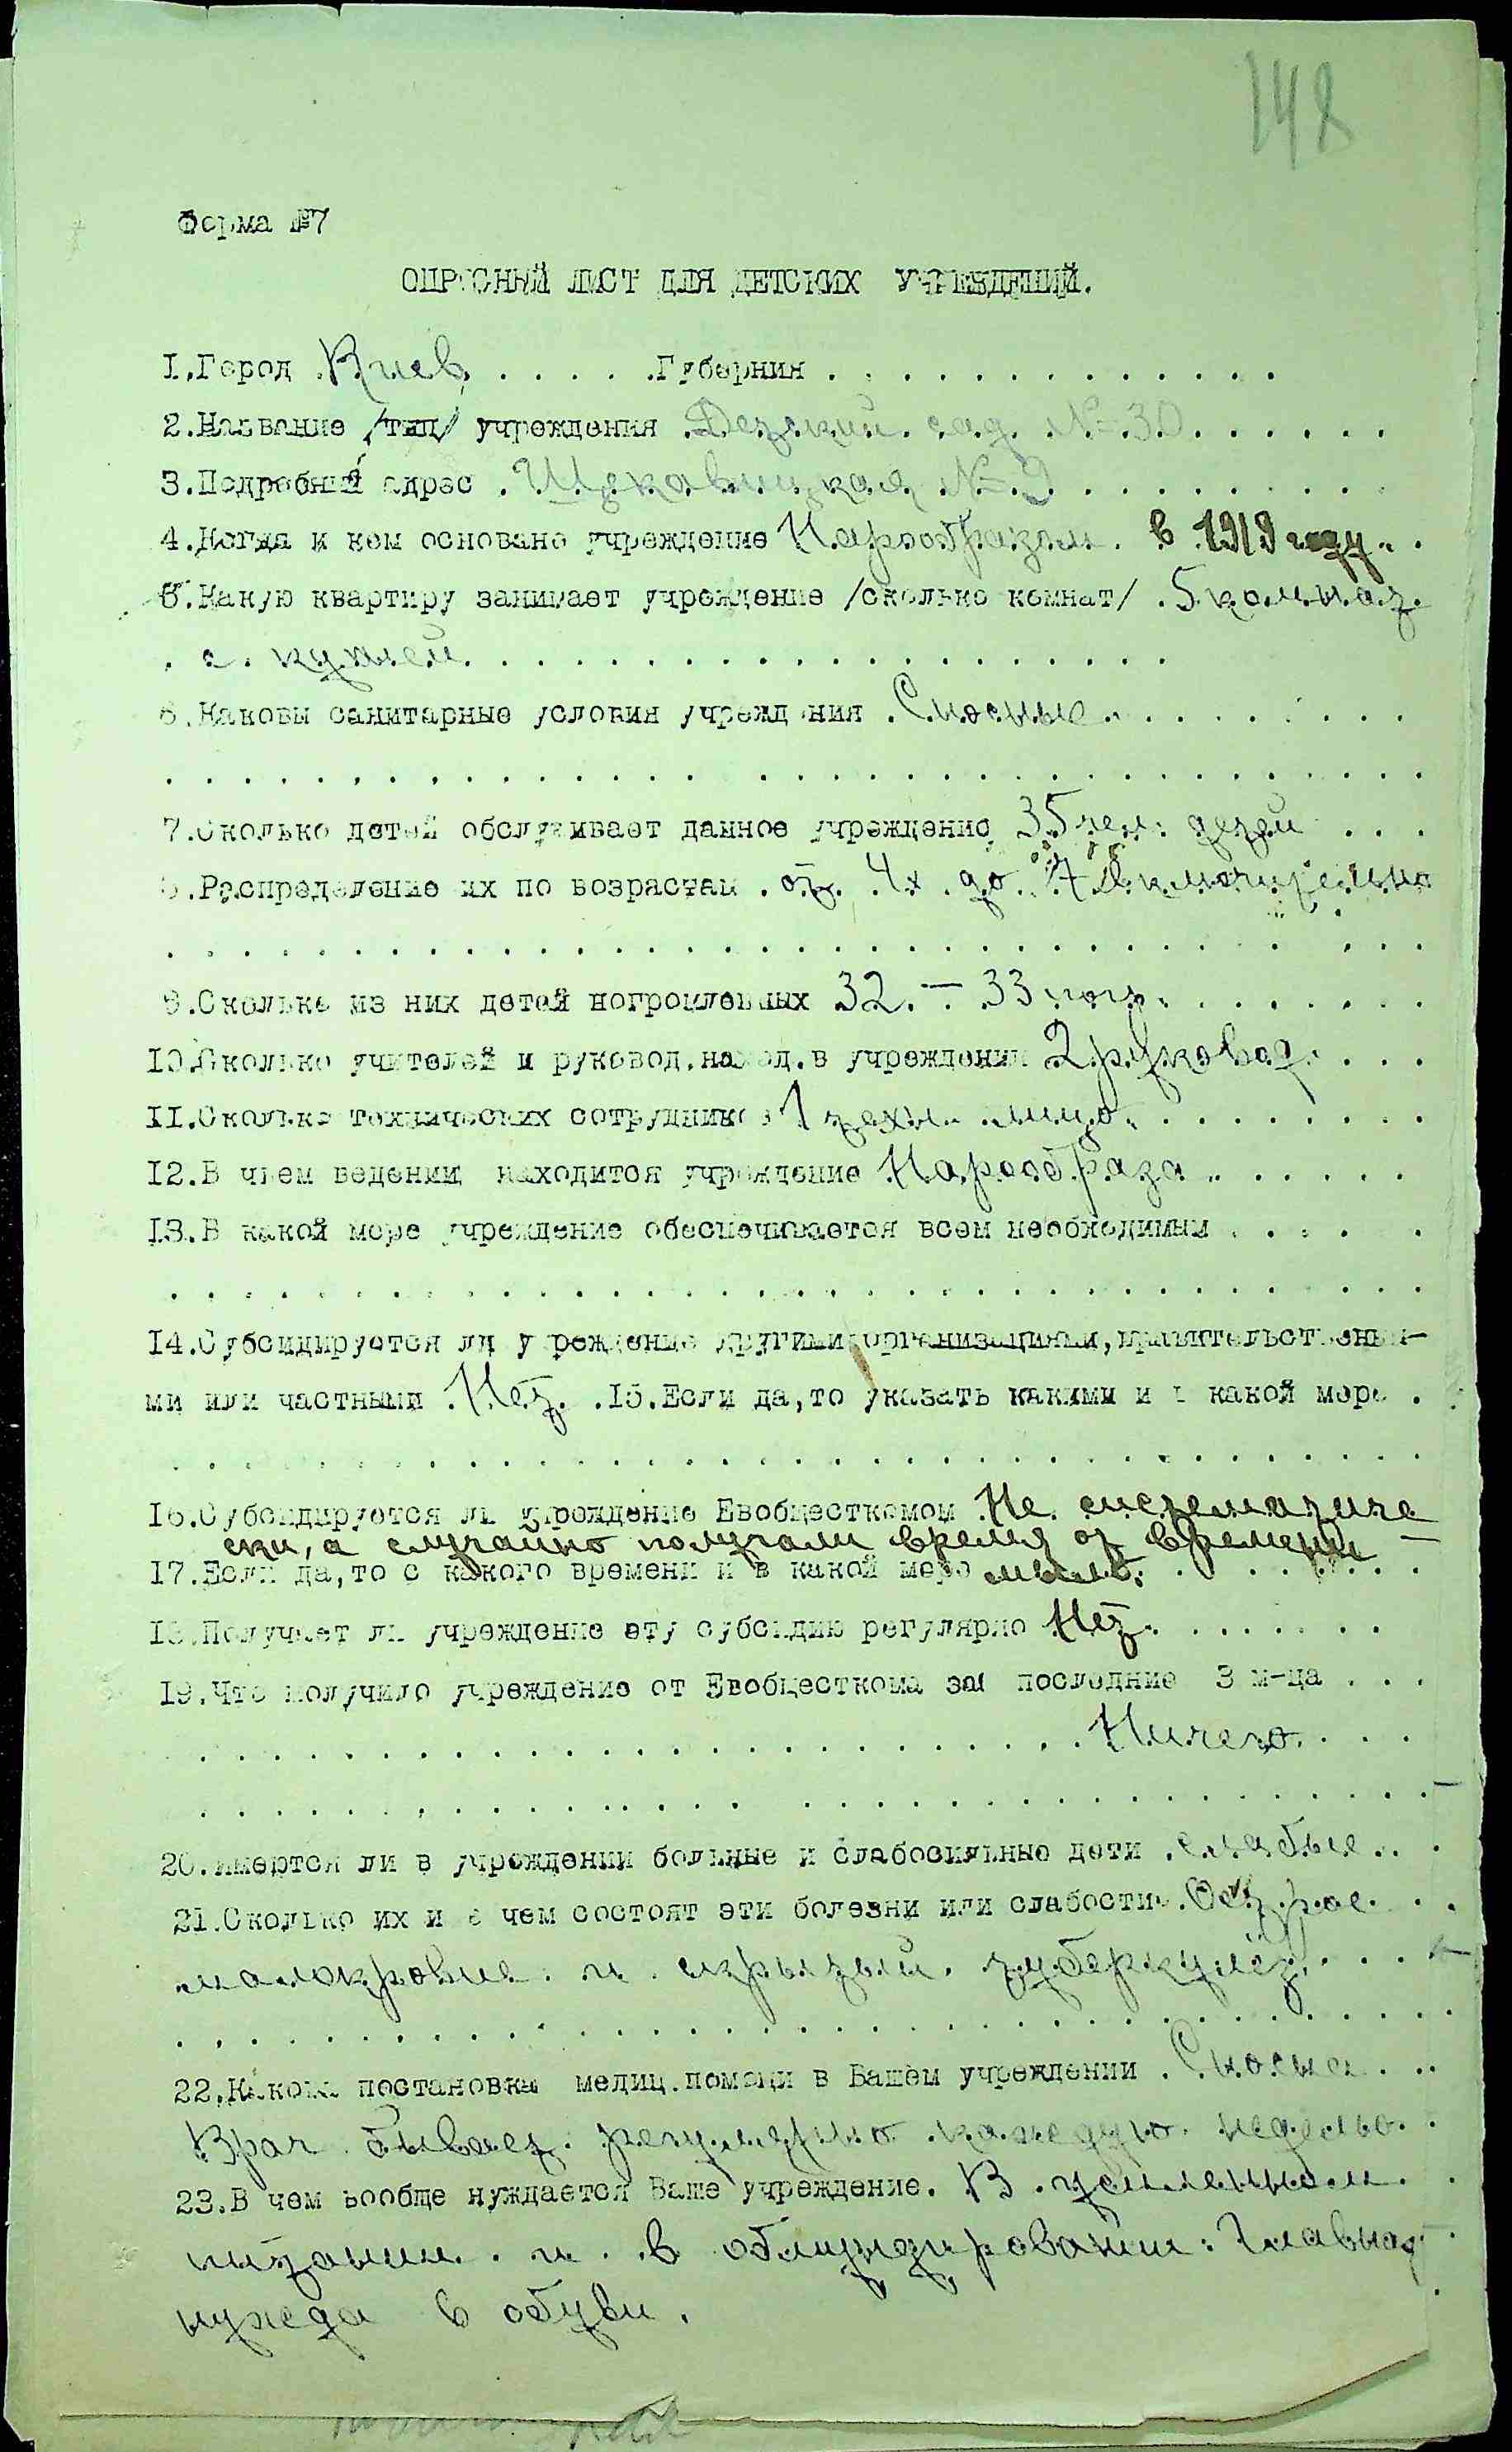 148
Форма №7
ОПРОСНЫЙ ЛИСТ ДЛЯ ДЕТСКИХ УЧРЕЖДЕНИЙ.
1.Город Киев. . . . . .Губерния . . . . . . . . . . . . .
2.Название /тип/ учреждения Детский сад № 30 . . . . . .
3.Подробный адрес . Щекавицкая № 9 . . . . . . . . .
4.Когда и кем основано учреждение Нарообразом в 1919 году. .
5.Какую квартиру занимает учреждение /сколько комнат/ .5 комнат
. с кухней. . . . . . . . . . . . . . . . . . . .
6.Каковы санитарные условия учреждения .Сносные. . . . . . . . .
7.Сколько детей обслуживает данное учреждение 35 чел. детей . . .
8.Распределение их по возрастам . от 4х до 7 включительно
9.Сколько из них детей погромленных 32 - 33 . . . . . . .
10.Сколько учителей и руковод.наход.в учреждении 2 руковод. . . .
11.Сколько технических сотрудников 1 техн. лицо. . . . . . . . .
12.В чьем ведении находится учреждение Нарообраза . . . . . .
13.В какой мере учреждение обеспечивается всем необходимым . . . . .
14.Субсидируется ли учреждение другими организациями, правительственны-
ми или частными .Нет. .15.Если да,то указать какими и в какой мере .
16.Субсидируется ли учреждение Евобщесткомом Не систематиче
ски, а случайно получали время от времени -
17.Если да,то с какого времени и в какой мере мыло. . . . . . .
18.Получает ли учреждение эту субсидию регулярно Нет. . . . . . .
19.Что получило учреждение от Евобщесткома за последние 3 м-ца . . .
. . . . . . . . . . . . . . . . . . . . . . . . Ничего. . . .
20.Имеются ли в учреждении больные и слабосильные дети . слабые . .
21.Сколько их и в чем состоят эти болезни или слабости . Острое . .
малокровие и скрытый туберкулёз. . . .
22.Какова постановка медиц.помощи в Вашем учреждении . Сносна . . .
Врач бывает регулярно каждую неделю. .
23.В чем вообще нуждается Ваше учреждение. В усиленном .
питании и в обмундировании. Главная
нужда в обуви.